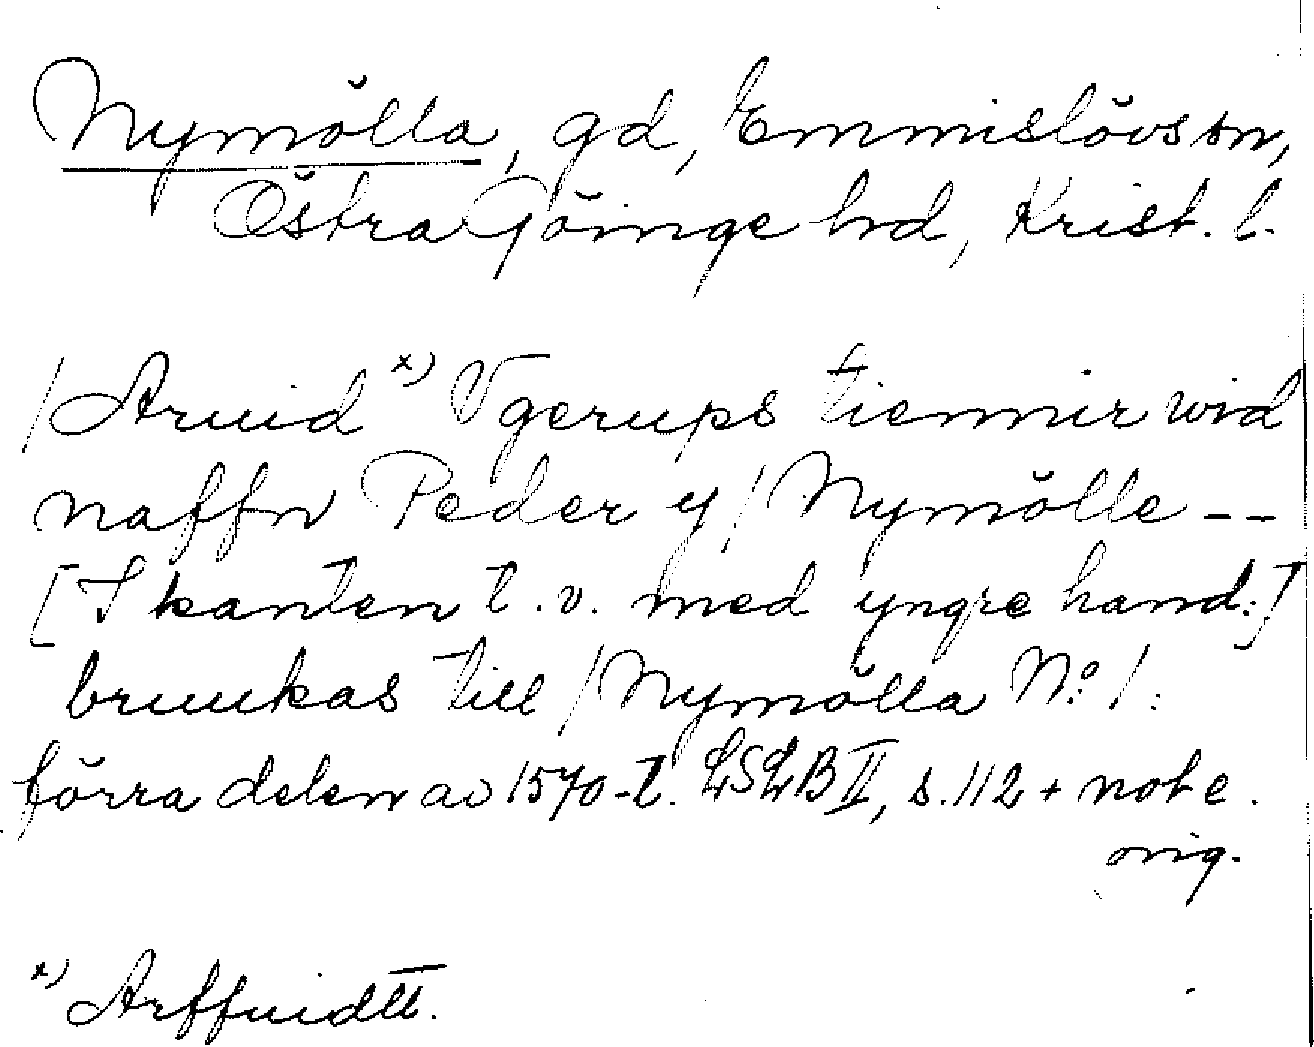 Nymölla, gd, Emmislövs sn,
Östra Göinge hd, Krist. l.
/Aruid x) Vgerups tiennir wid
naffn Peder y/ Nymölle --
[I kanten t.v. med yngre hand:]
bruukas till / Nymölla No 1:
förra delen av 1570-t. LSLB II, s. 112 + not e.
orig.
x) Arffuidtt.